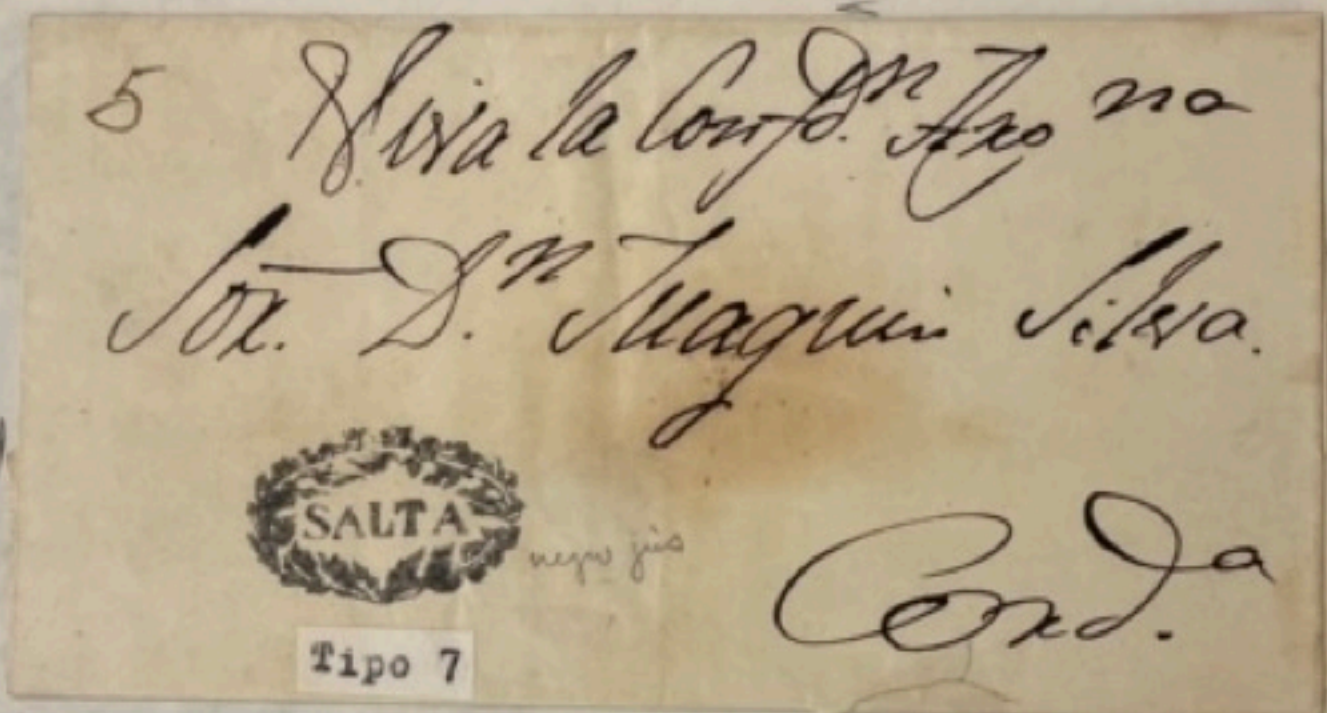 5 Viva la Confd.n Arg na
Sor. D.n Juaquin Silva.
SALTA
negro gris
Cord.a
Tipo 7